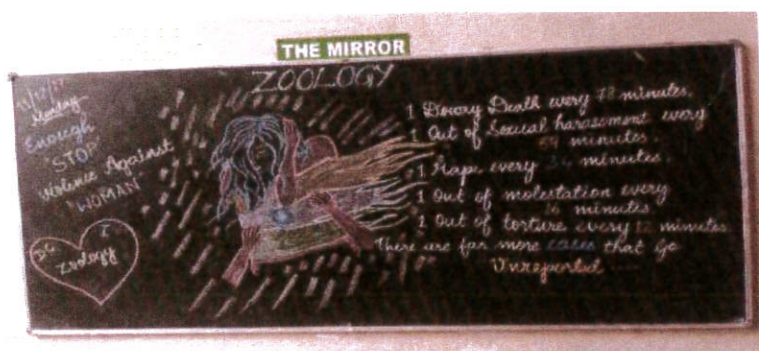 THE MIRROR
ZOOLOGY
Monday
Enough
"STOP"
Violence Against
"WOMAN"
I
Zoology
1 Dowry Death every 78 minutes.
1 Out of Sexual harassment every
59 minutes.
1 Rape every 34 minutes.
1 Out of molestation every
16 minutes
1 Out of torture every 12 minutes
There are far more cases that Go
Unreported